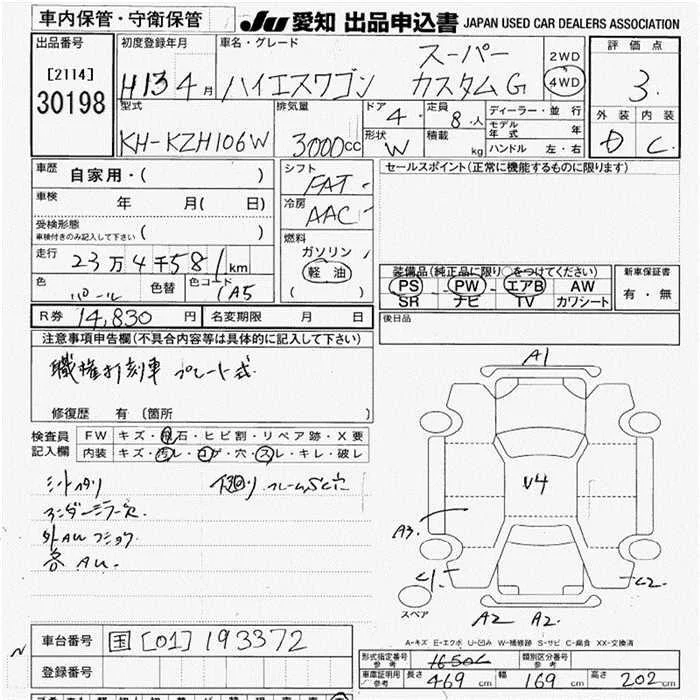 車内保管・守衛保管
JU 愛知 出品申込書 JAPAN USED CAR DEALERS ASSOCIATION
出品番号
[2114]
30198
初度登録年月
H13 4月
車名・グレード
ハイエスワゴン スーパー カスタムG
2WD
4WD
評価点
3.
外装 内装
D C.
型式
KH-KZH106W
排気量
3000cc
ドア
4
形状
W
定員
8人
積載
kg
ディーラー・並行
モデル年式 年
ハンドル 左・右
車歴
自家用・( )
車検
年 月( 日)
受検形態
車検付きのみ記入して下さい ( )
走行
23万4千581km
色
パール
色替
色コード
1A5
シフト
FAT
冷房
AAC
燃料
ガソリン
軽油
( )
セールスポイント(正常に機能するものに限ります)
装備品(純正品に限り○をつけてください)
PS PW エアB AW
SR ナビ TV カワシート
新車保証書
有・無
R券 14,830円 名変期限 月 日
後日品
注意事項申告欄(不具合内容等は具体的に記入して下さい)
職権打刻車 プレート式
修復歴 有(箇所 )
検査員
記入欄
FW キズ・飛石・ヒビ割・リペア跡・X要
内装 キズ・汚レ・コゲ・穴・スレ・キレ・破レ
シートスリ
アンダーミラー欠.
外AU
各AU.
下廻り フレームSC穴
A1
V4
A3.
C1
C2
A2 A2.
スペア
A-キズ E-エクボ U-凹み W-補修跡 S-サビ C-腐食 XX-交換済
車台番号 国[01]193372
登録番号
形式指定番号
参考
類別区分番号
参考
車庫証明用
参考
長さ 469cm 幅 169cm 高さ 202cm